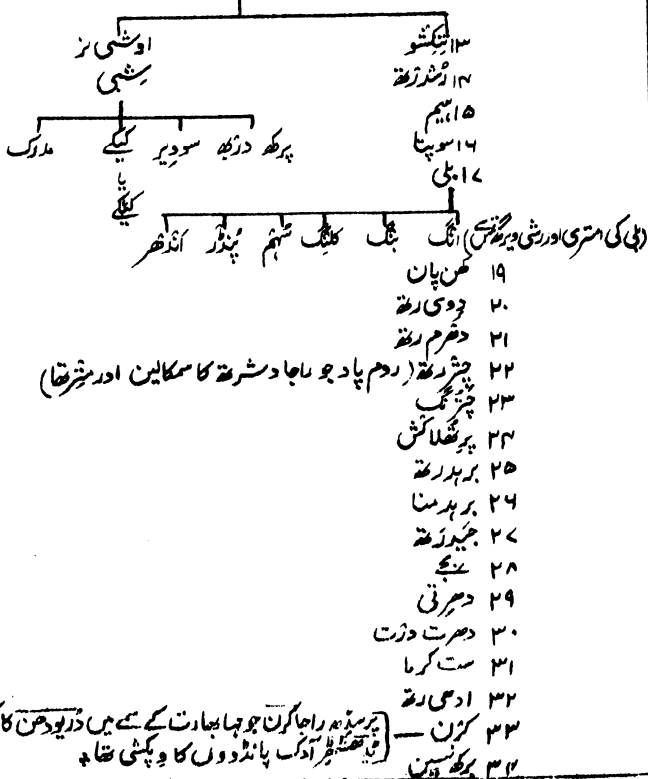 ۱۳ تِتِکشو اوشی نز
۱۴ رُشدرتھ شِبی
۱۵ ہیم
۱۶ سوپتا پرکھ درژبھ سودیر کیکے مدرک
۱۷ بلی یا کیکے
(بلی کی استری اور رشی ویرگھتمس سے) انگ بنگ کلِنگ سُہم پُنڈر اندھر
۱۹ کھن پان
۲۰ دِوی رتھ
۲۱ دھرم رتھ
۲۲ چِتر رتھ (روم پاد جو راجا دشرتھ کا سمکالین اور مِتر تھا)
۲۳ چترنگ
۲۴ پرتھُلاکش
۲۵ برہدرتھ
۲۶ برہدمنا
۲۷ جَیدرَتھ
۲۸ بجے
۲۹ دھرتی
۳۰ دھرت درت
۳۱ ست کرما
۳۲ ادھی رتھ
۳۳ کرن — پرسِدھ راجا کرن جو مہابھارت کے سمے میں دُریودھن کا
یُدھِشٹھِر آدِک پانڈووں کا وِپکشی تھا +
۳۴ برکھ سین